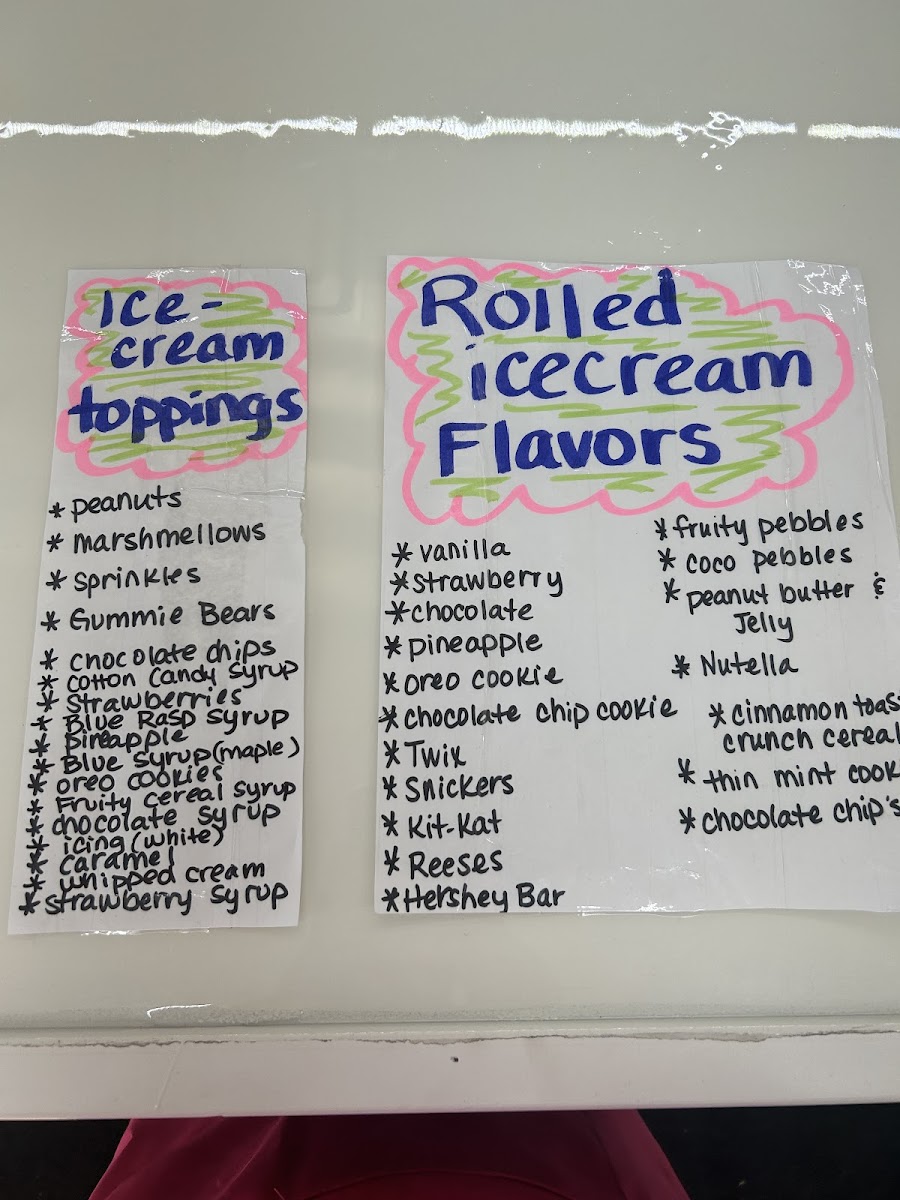 Ice-
cream
toppings
* peanuts
* marshmellows
* sprinkles
* Gummie Bears
* chocolate chips
* cotton candy syrup
* strawberries
* Blue Rasp syrup
* pineapple
* Blue syrup (maple)
* oreo cookies
* Fruity cereal syrup
* chocolate syrup
* icing (white)
* caramel
* whipped cream
* strawberry syrup
Rolled
icecream
Flavors
* vanilla
* strawberry
* chocolate
* pineapple
* oreo cookie
* chocolate chip cookie
* Twix
* Snickers
* Kit-Kat
* Reeses
* Hershey Bar
* fruity pebbles
* coco pebbles
* peanut butter &
Jelly
* Nutella
* cinnamon toas
crunch cereal
* thin mint cook
* chocolate chip's